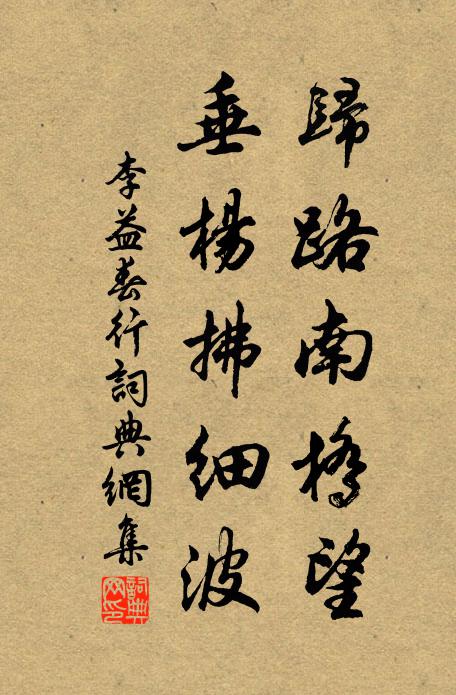 歸路南橋望
垂楊拂細波
李益春行詞典網集
詞典網印